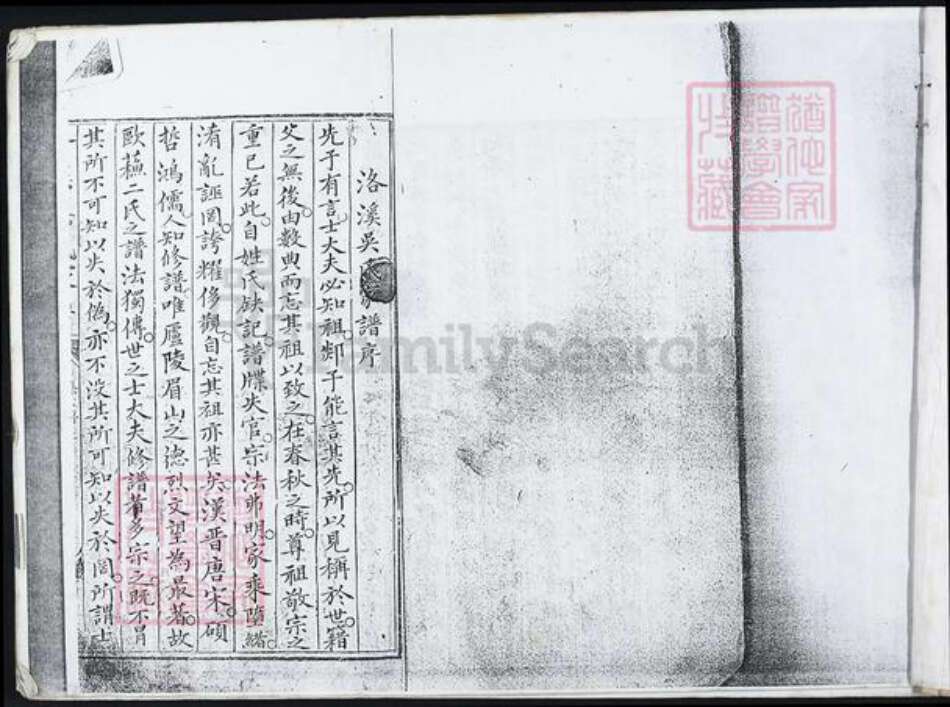 洛溪吳氏家譜序
先子有言士大夫必知祖郯子能言其先所以見稱於世籍
父之無後由數典而忘其祖以致之在春秋之時尊祖敬宗之
重已若此自姓氏缺記譜牒失官宗法弗明家乘墮緒
淆亂誣罔誇耀侈觀自忘其祖亦甚矣漢晉唐宋碩
哲鴻儒人知修譜唯廬陵眉山之德烈文望為最著故
歐蘇二氏之譜法獨傳世之士大夫修譜者多宗之既不冒
其所不可知以失於偽亦不沒其所可知以失於罔所謂
FamilySearch
猶他家
譜學會
收藏